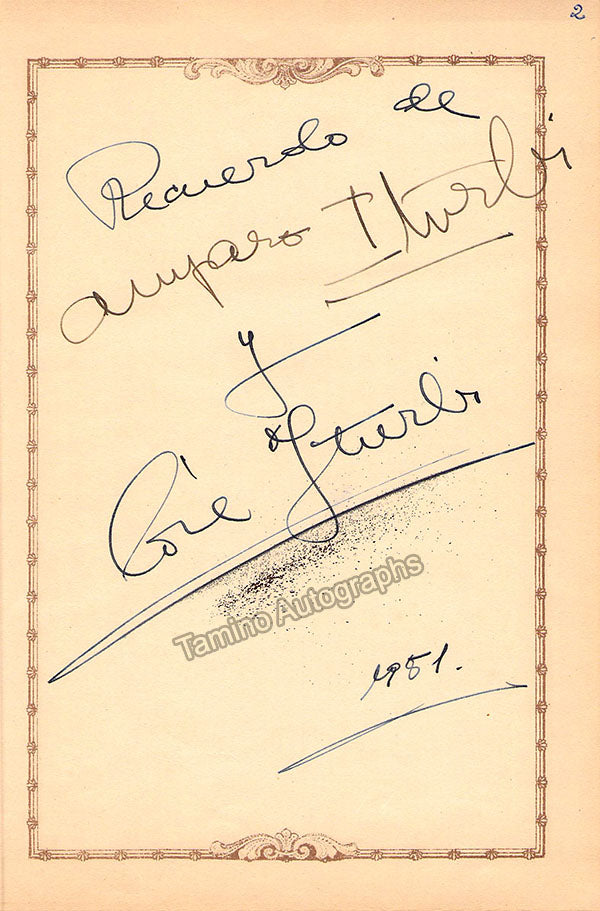 2
Recuerdo de
Amparo Iturbi
y
José Iturbi
Tamino Autographs
1951.